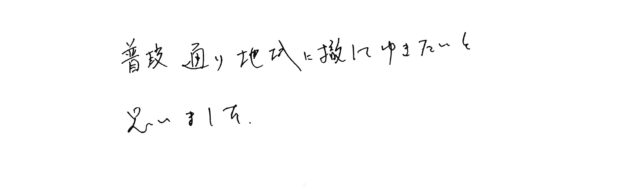 普段通り地域に撤してゆきたいと
思いました.